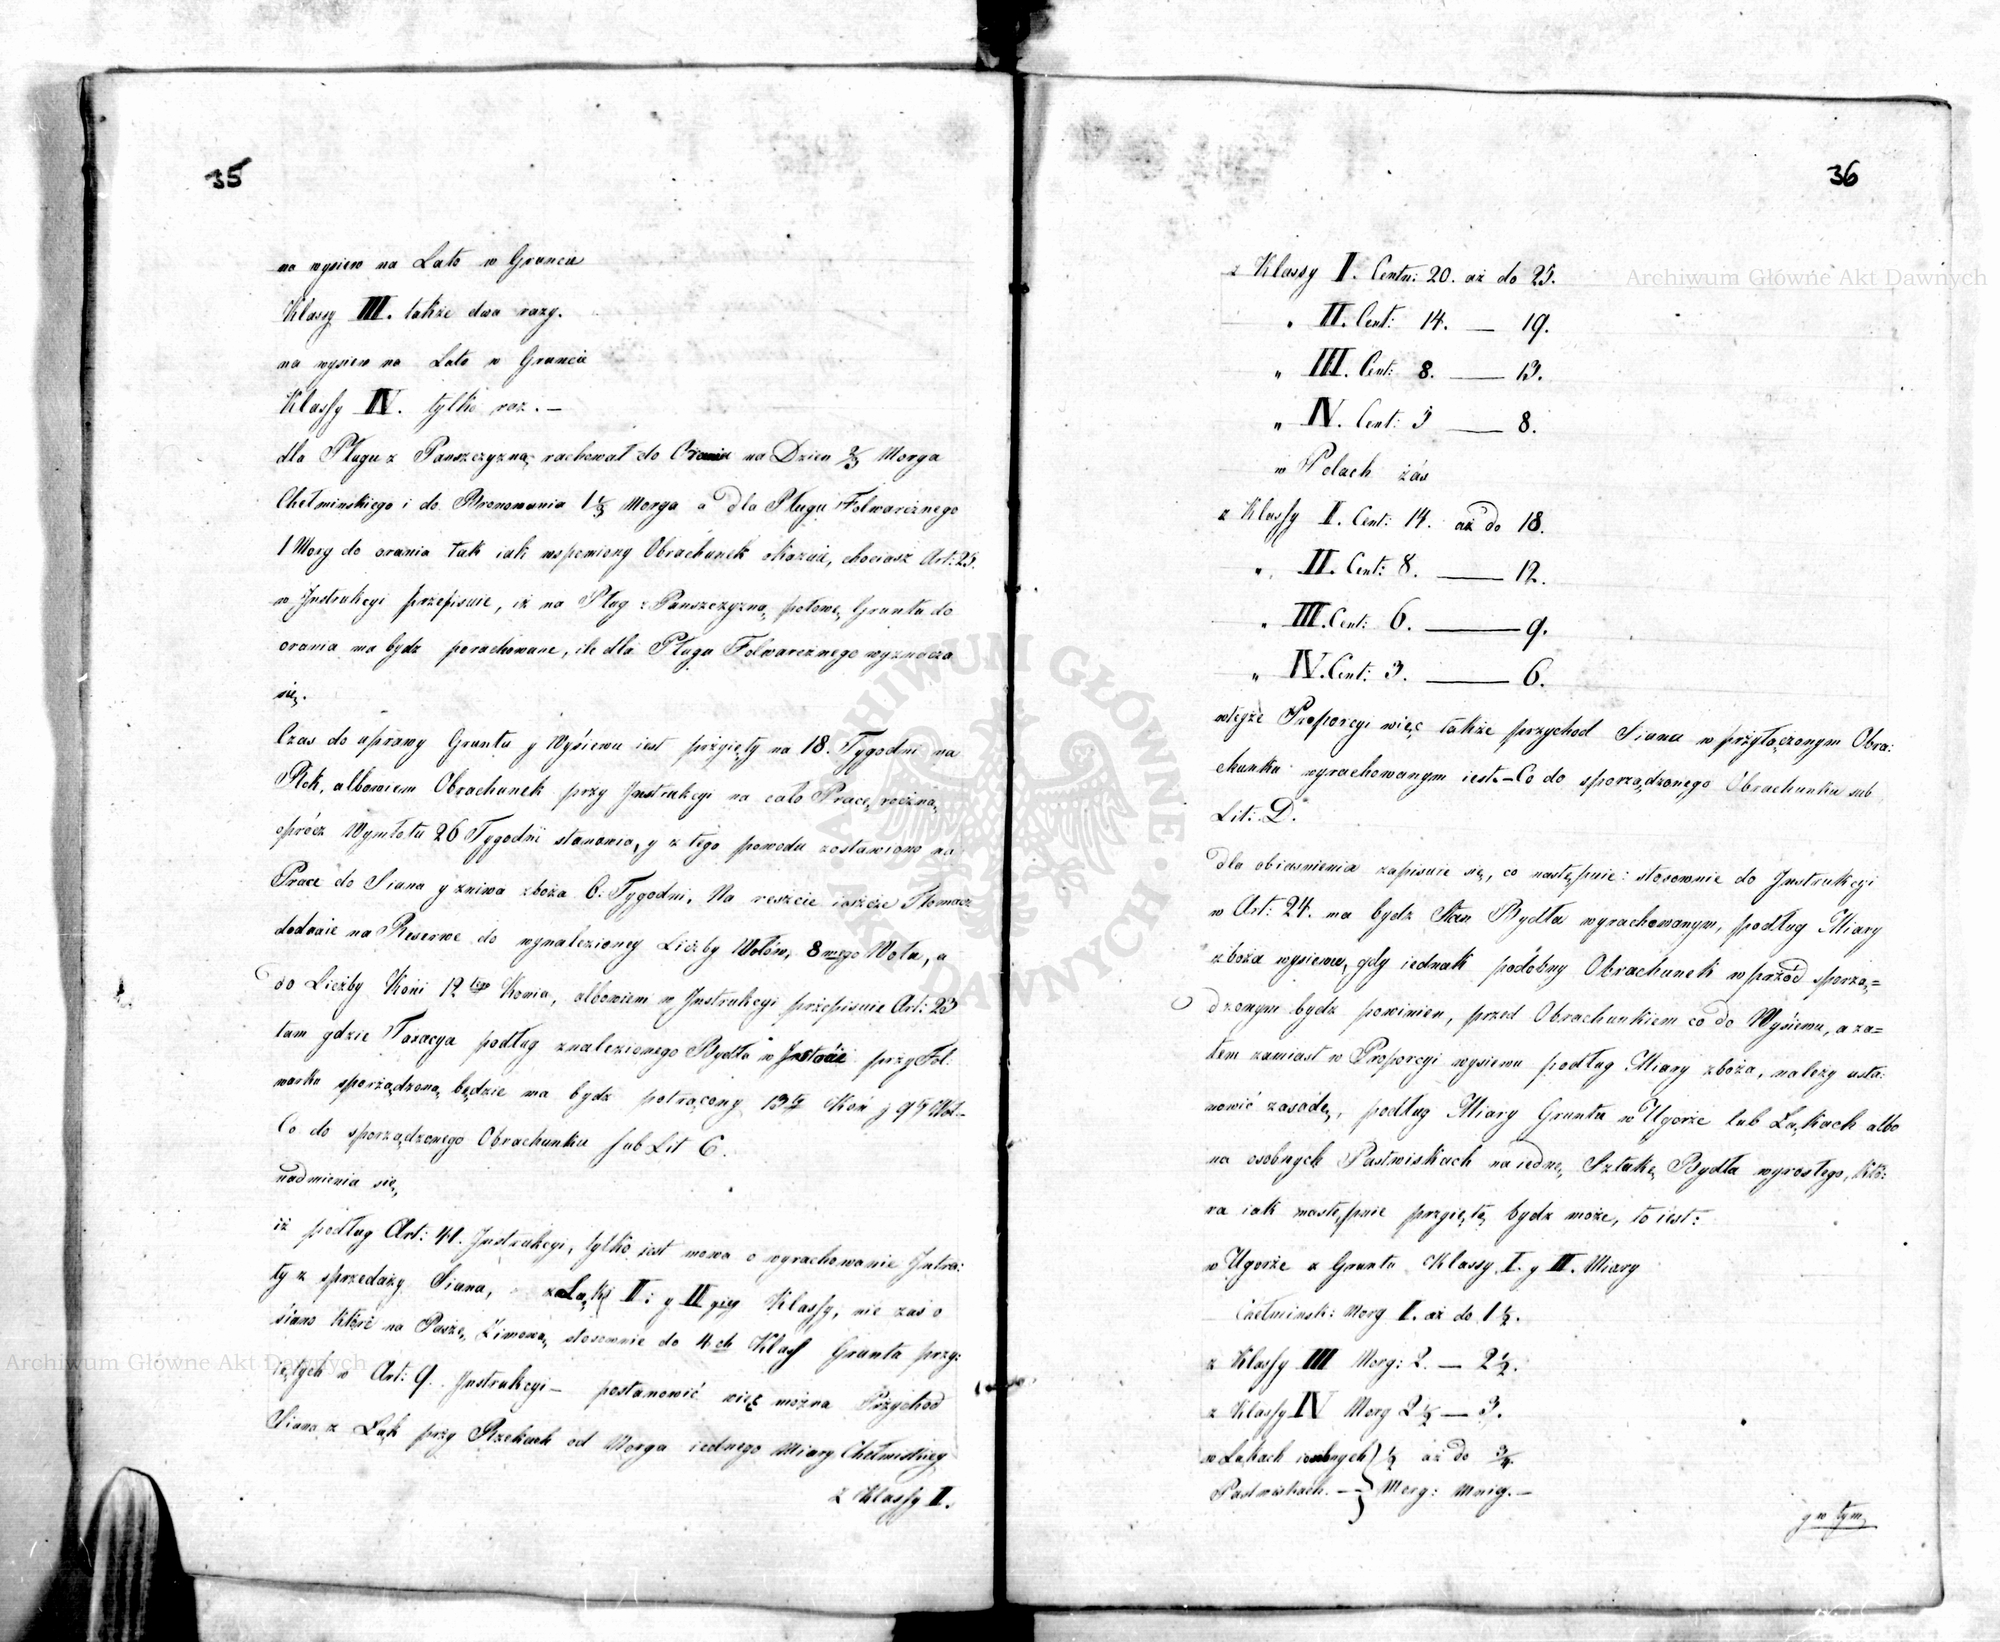 35
na wysiew na Lato w Gruncie
Klassy III. także dwa razy.
na wysiew na Lato w Gruncie
Klassy IV. tylko raz. —
dla Pługu z Panszczyzną rachował do Orania na Dzien 2/3 Morga
Chełminskiego i do Bronowania 1 1/3 Morga a dla Pługu Folwarcznego
1 Morg do orania tak iak wspomiony Obrachunek okazuie, chociasz Art: 25.
w Instrukcyi przepisuie, iż na Pług z Panszczyzną, połowę Gruntu do
orania ma bydz porachowane, ile dla Pługa Folwarcznego wyznacza
się.
Czas do uprawy Gruntu y Wysiewu iest przyięty na 18. Tygodni na
Rok, albowiem Obrachunek przy Instrukcyi na całą Pracę roczną,
oprócz Wymłotu 26 Tygodni stanowią, y z tego powodu zostawiono na
Prace do Siana y żniwa zboża 6: Tygodni. Na reszcie ieszcze Tłomacz
dodaie na Reserwe do wynalezioney Liczby Wołów, 8mego Wołu, a
do Liczby Koni 12tego Konia, albowiem w Instrukcyi przepisuie Art: 23
tam gdzie Taxacya podług znalezionego Bydła w Instacie przy Fol-
warku sporządzona będzie ma bydz potrącony 13ty Koń y 9ty Woł—
Co do sporządzonego Obrachunku sub Lit C.
nadmienia się,
iż podług Art: 41. Instrukcyi, tylko iest mowa o wyrachowanie Intra:
ty z sprzedaży Siana, z Łąki I: y II giey Klassy, nie zaś o
siano które na Paszę Zimową, stosownie do 4.ch Klass Gruntu przy:
iętych w Art: 9. Instrukcyi — postanowić więc można Przychod
Siana z Łąk przy Rzekach od Morga iednego Miary Chełmiskiey
z Klassy I.
36
z Klassy I. Centn: 20. aż do 25.
" II. Cent: 14. — 19.
" III. Cent: 8. — 13.
" IV. Cent: 5 — 8.
w Polach zas
z Klassy I. Cent: 14. aż do 18.
" II. Cent: 8. — 12.
" III. Cent: 6. — 9.
" IV. Cent: 3. — 6.
wteyże Proporcyi więc także przychod Siana w przyłączonym Obra:
chunku wyrachowanym iest. — Co do sporządzonego Obrachunku sub
Lit: D.
dla obiasnienia zapisuie się, co następuie: stosownie do Instrukcyi
w Art: 24. ma bydz Stan Bydła wyrachowanym, podług Miary
zboża wysiewu, gdy iednak podobny Obrachunek wprzód sporzą=
dzonym bydz powinien, przed Obrachunkiem co do Wysiewu, a za=
tem zamiast w Proporcyi wysiewu podług Miary zboża, należy usta:
nowić zasadę, podług Miary Gruntu w Ugorze lub Łąkach albo
na osobnych Pastwiskach na iednę Sztukę Bydła wyrosłego, któ:
ra iak następnie przyiętą bydz może, to iest:
w Ugorze z Gruntu Klassy I. y II. Miary
Chełminsk: Morg I. aż do 1 1/2.
z Klassy III Morg: 2. — 2 1/2.
z Klassy IV Morg 2 1/2 — 3.
w Łąkach i osobnych } 1/2 aż do 3/4
Pastwiskach. — } Morg: Mnig. —
y w tym
Archiwum Główne Akt Dawnych
Archiwum Główne Akt Dawnych
ARCHIWUM GŁÓWNE AKT DAWNYCH